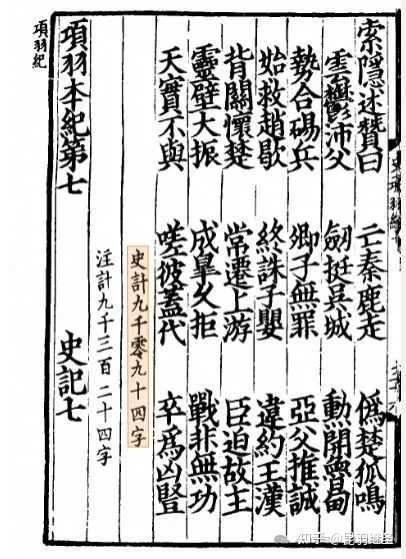 索隱述贊曰　亡秦鹿走　僞楚狐鳴
雲鬱沛父　劔挺吳城　勳開魯甸
勢合碭兵　卿子無罪　亞父推誠
始救趙歇　終誅子嬰　違約王漢
背關懷楚　常遷上游　臣迫故主
靈壁大振　成臯久拒　戰非無功
天實不與　嗟彼蓋代　卒爲凶豎
史計九千零九十四字
注計九千三百二十四字
項羽本紀第七　史記七
項羽紀
知乎 @昆羽继圣